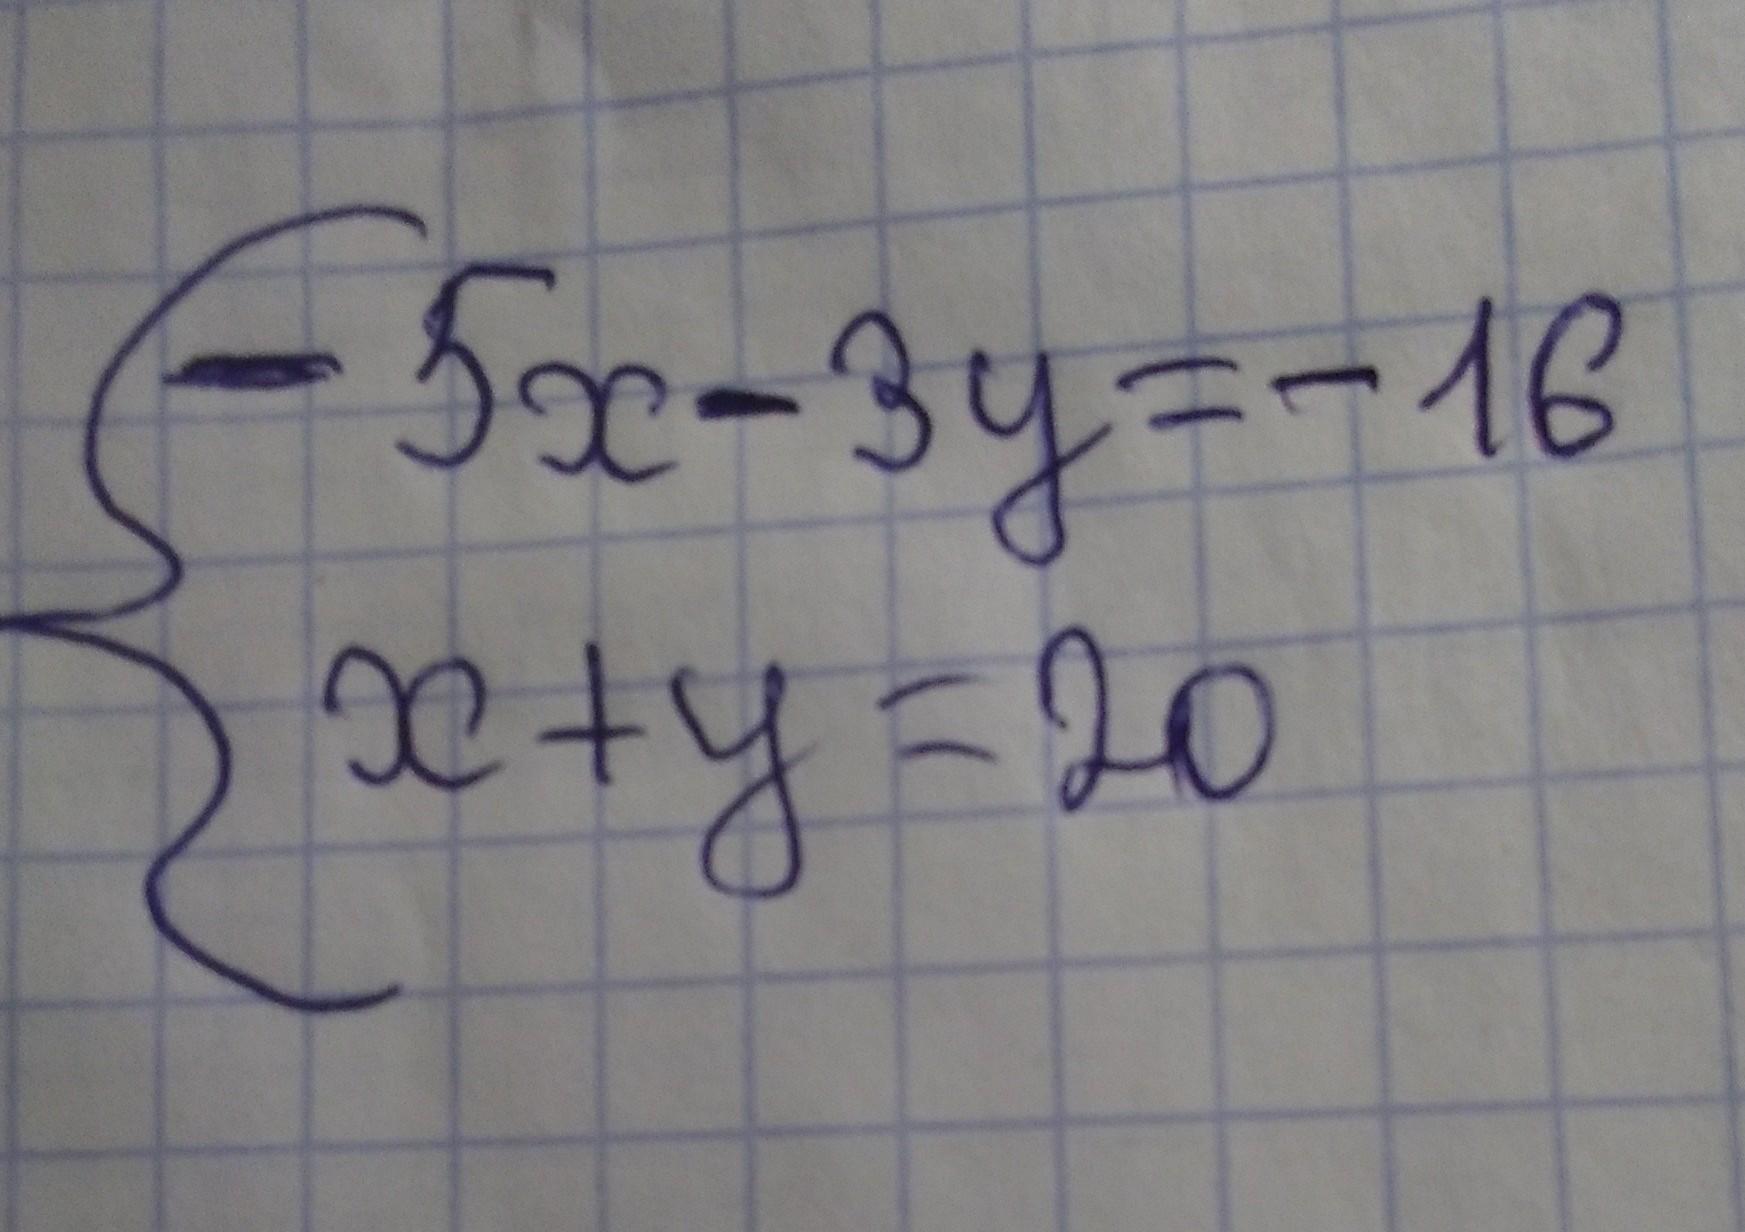 -5x-3y=-16
x+y=20